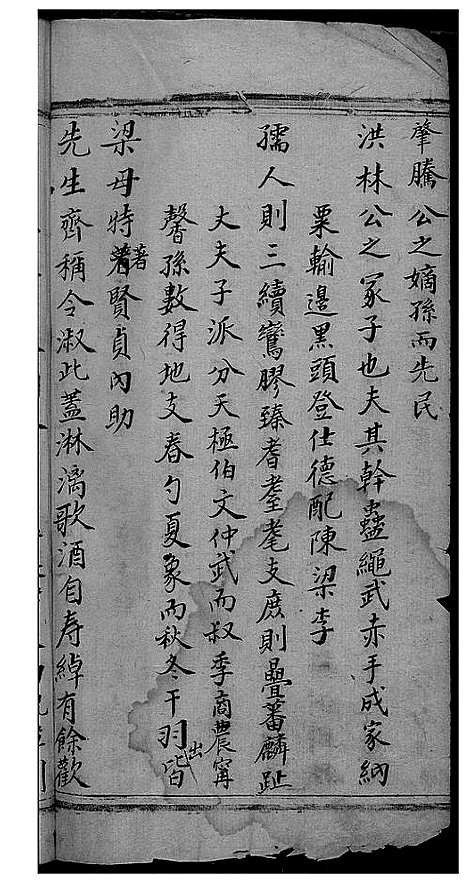 肇騰公之嫡孫而先民
洪林公之冢子也夫其幹蠱繩武赤手成家納
粟輸邊黑頭登仕德配陳梁李
孺人則三續鸞膠臻耆耋耄支庶則疊蕃麟趾
大夫子派分天極伯文仲武而叔季商農甯
馨孫數得地支春勺夏象而秋冬干羽皆出
梁母特著著賢貞內助
先生齊稱令淑此蓋淋漓歌酒自壽綽有餘歡